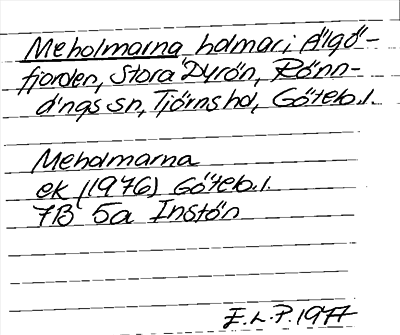 Meholmarna holmar i Älgö-
fjorden, Stora Dyrön, Rönn-
ängs sn, Tjörns hd, Göteb.l.
Meholmarna
ek (1976) Göteb.l.
7B 5a Instön
E.L.P. 1977